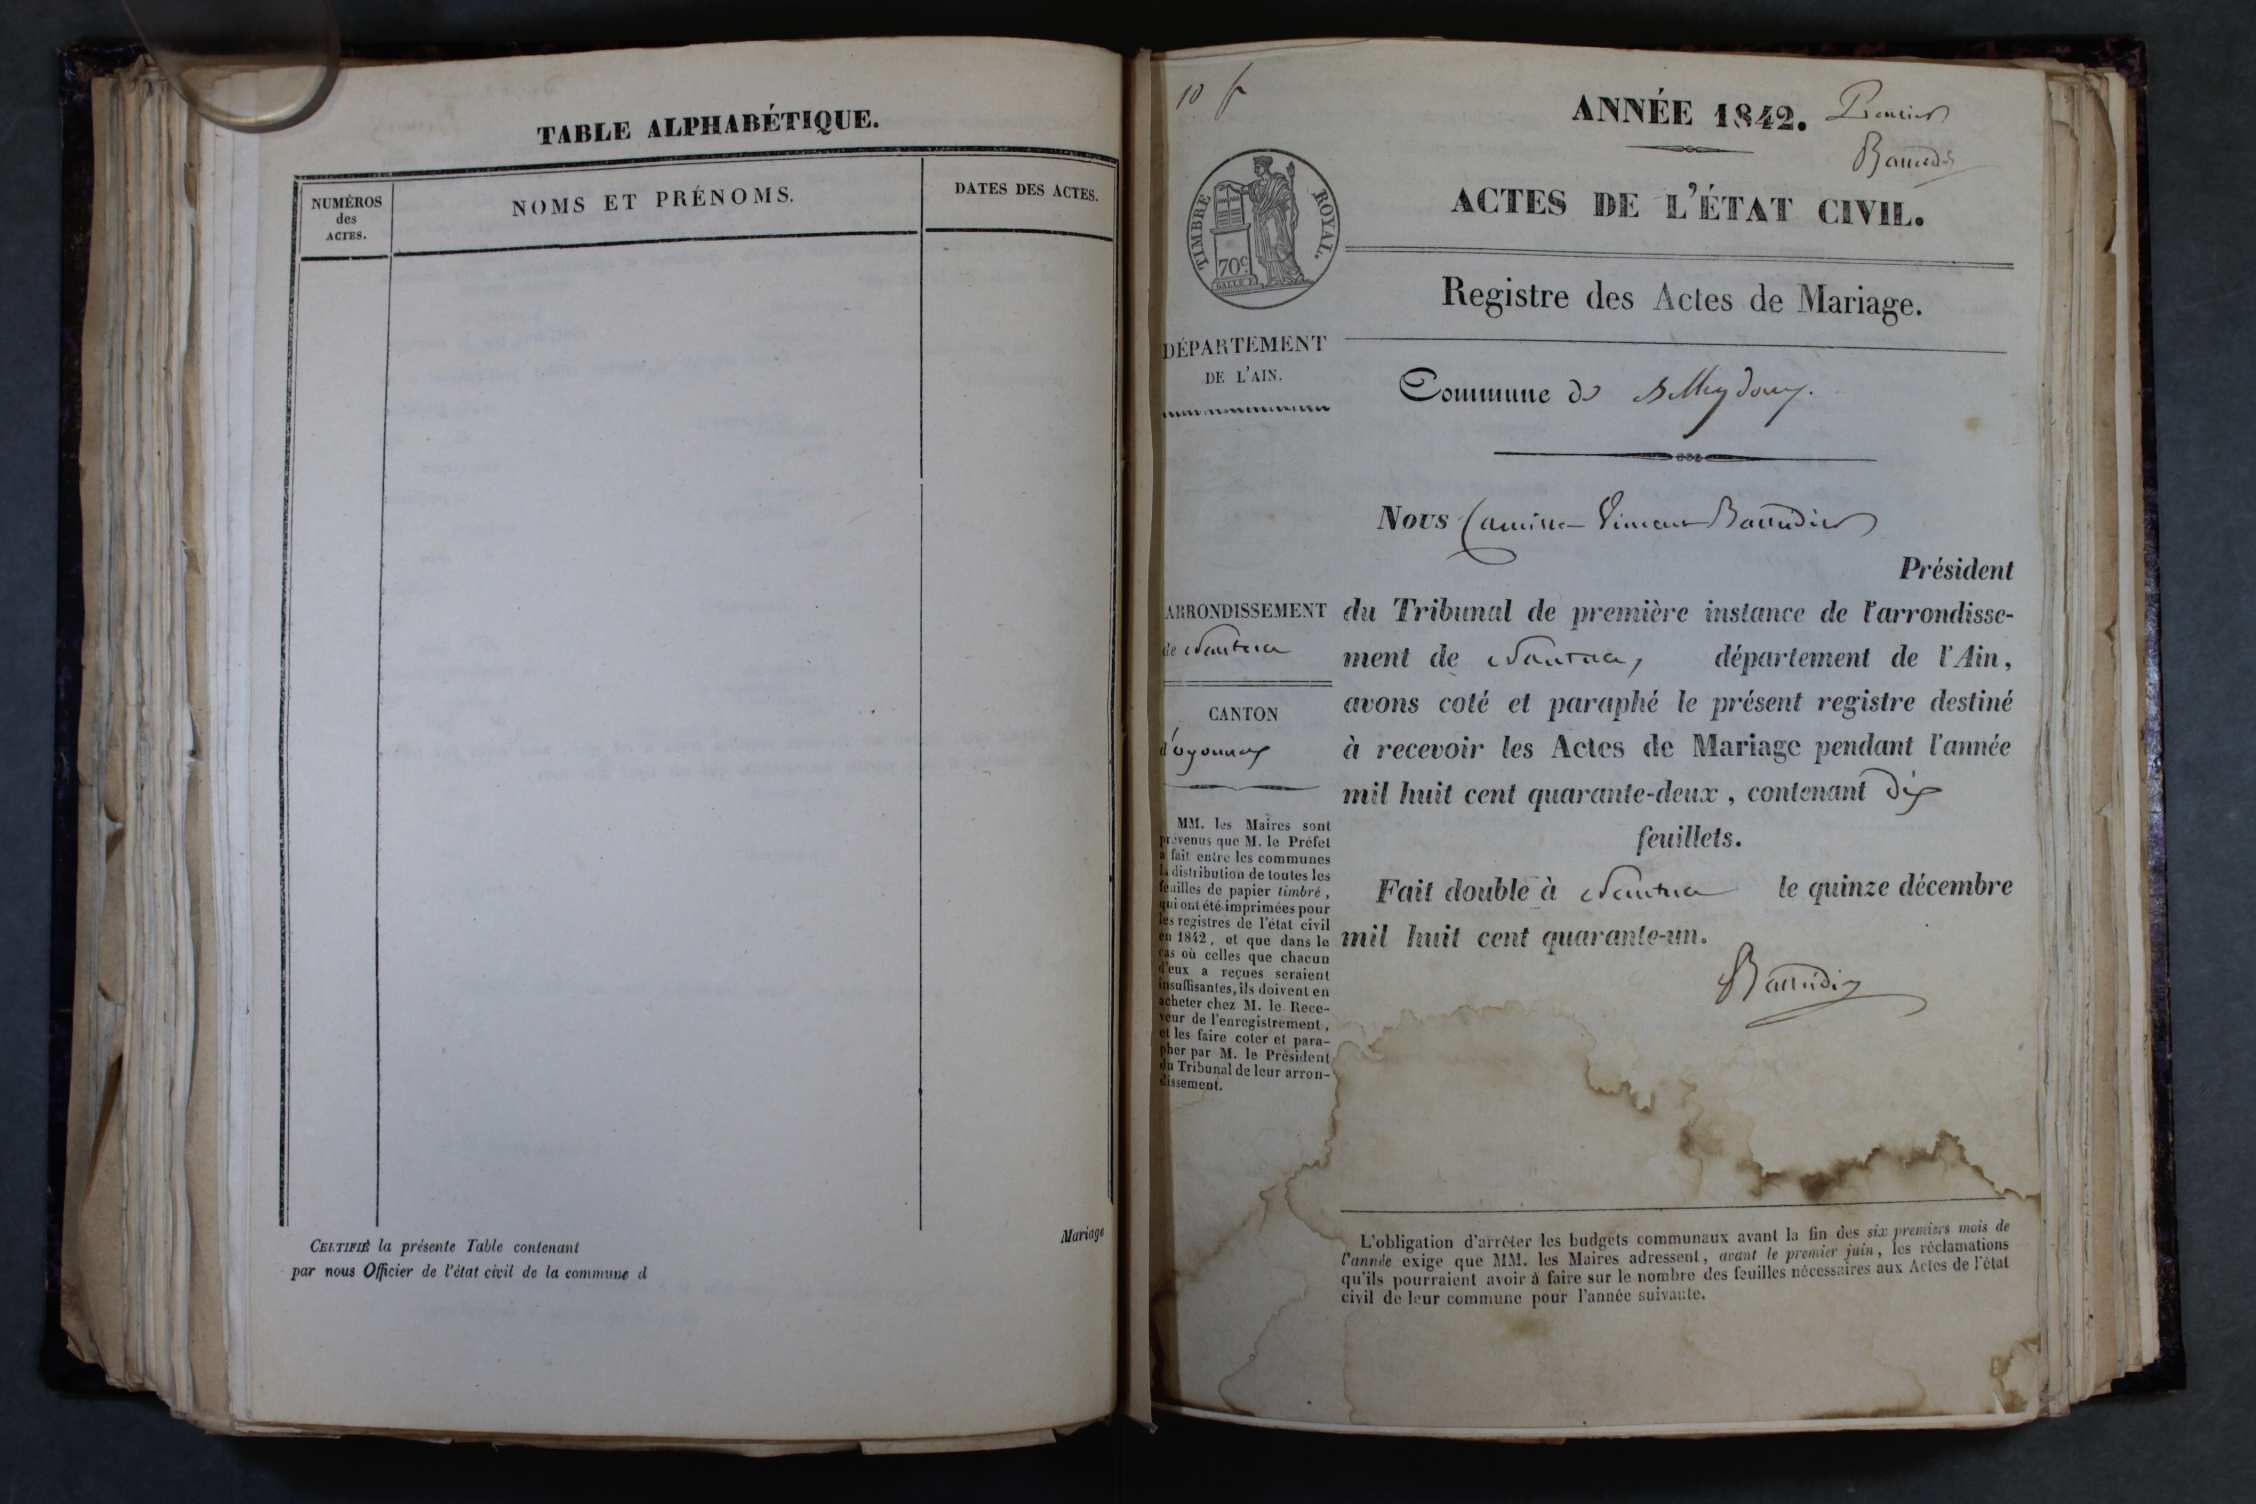 TABLE ALPHABÉTIQUE.
NUMÉROS
des
ACTES.
NOMS ET PRÉNOMS.
DATES DES ACTES.
Mariage
CERTIFIÉ la présente Table contenant
par nous Officier de l'état civil de la commune d
10 f
ANNÉE 1842.
Premier
ACTES DE L'ÉTAT CIVIL.
TIMBRE ROYAL.
70c
Registre des Actes de Mariage.
DÉPARTEMENT
DE L'AIN.
Commune de
Nous Camille Vincent Baudier
Président
ARRONDISSEMENT
de Nantua
CANTON
d'oyonnax
du Tribunal de première instance de l'arrondisse-
ment de Nantua, département de l'Ain,
avons coté et paraphé le présent registre destiné
à recevoir les Actes de Mariage pendant l'année
mil huit cent quarante-deux, contenant dix
feuillets.
Fait double à Nantua le quinze décembre
mil huit cent quarante-un.
MM. les Maires sont
prévenus que M. le Préfet
a fait entre les communes
la distribution de toutes les
feuilles de papier timbré,
qui ont été imprimées pour
les registres de l'état civil
en 1842, et que dans le
cas où celles que chacun
d'eux a reçues seraient
insuffisantes, ils doivent en
acheter chez M. le Rece-
veur de l'enregistrement,
et les faire coter et para-
pher par M. le Président
du Tribunal de leur arron-
dissement.
L'obligation d'arrêter les budgets communaux avant la fin des six premiers mois de
l'année exige que MM. les Maires adressent, avant le premier juin, les réclamations
qu'ils pourraient avoir à faire sur le nombre des feuilles nécessaires aux Actes de l'état
civil de leur commune pour l'année suivante.